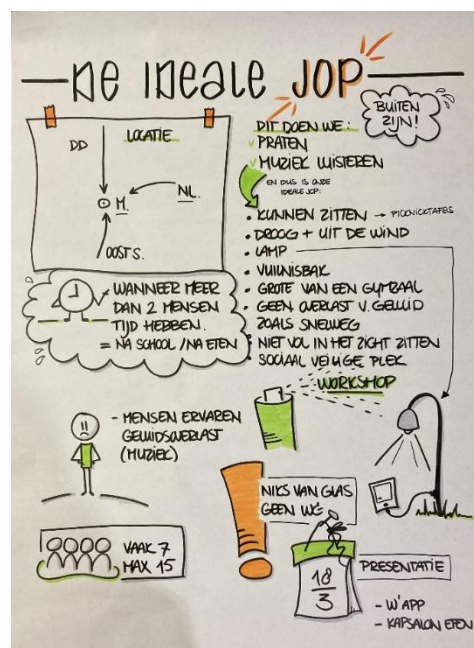 DE IDEALE JOP
BUITEN
ZIJN!
LOCATIE
DD
M.
NL.
OOST S.
DIT DOEN WE:
PRATEN
MUZIEK LUISTEREN
EN DUS IS ONZE
IDEALE JOP:
• KUNNEN ZITTEN → PICNICKTAFELS
• DROOG + UIT DE WIND
• LAMP
• VUILNISBAK
• GROTE VAN EEN GYMZAAL
• GEEN OVERLAST V. GELUID
ZOALS SNELWEG
• NIET VOL IN HET ZICHT ZITTEN
• SOCIAAL VEILIGE PLEK
WANNEER MEER
DAN 2 MENSEN
TIJD HEBBEN.
= NA SCHOOL / NA ETEN
WORKSHOP
- MENSEN ERVAREN
GELUIDSOVERLAST
(MUZIEK)
NIKS VAN GLAS
GEEN WC
VAAK 7
MAX 15
18
3
PRESENTATIE
- W'APP
- KAPSALON ETEN